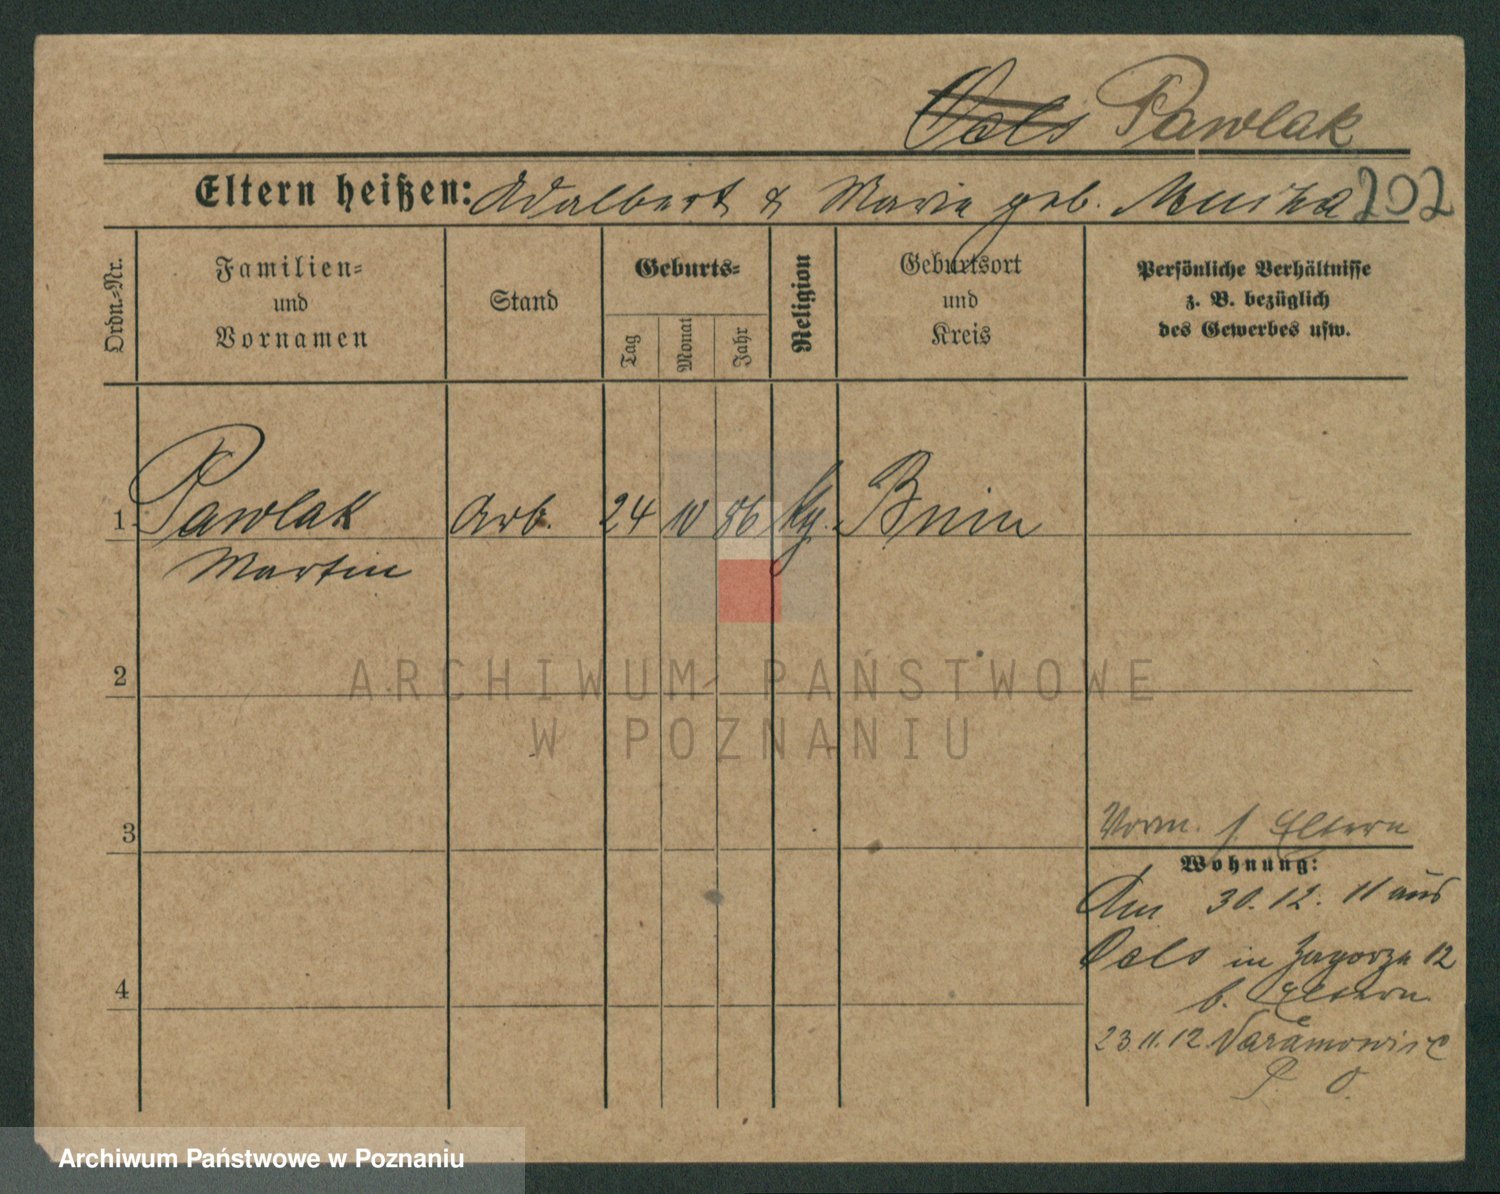 Oels Pawlak
Eltern heißen: Adalbert & Marie geb. Musiza 202
Ordn.-Nr.
Familien-
und
Vornamen
Stand
Geburts-
Tag
Monat
Jahr
Religion
Geburtsort
und
Kreis
Persönliche Verhältnisse
z. B. bezüglich
des Gewerbes usw.
1. Pawlak Arb. 24 10 86 Bnin
Martin
2
3
4
ARCHIWUM PAŃSTWOWE
W POZNANIU
Vorm. f. Eltern
Wohnung:
Am 30.12.11 aus
Oels in Zagorze 12
b. Eltern
23.11.12.
P O.
Archiwum Państwowe w Poznaniu